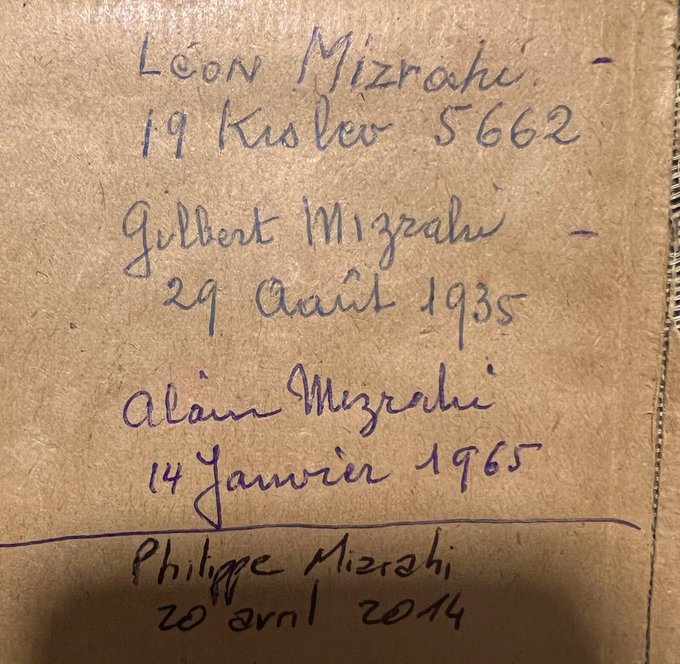 Léon Mizrahi -
19 Kislev 5662
Gilbert Mizrahi -
29 Août 1935
Alain Mizrahi
14 Janvier 1965
Philippe Mizrahi
20 avril 2014